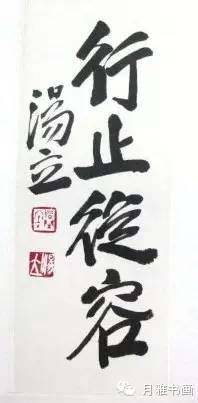 行止從容
湯立
月雅书画